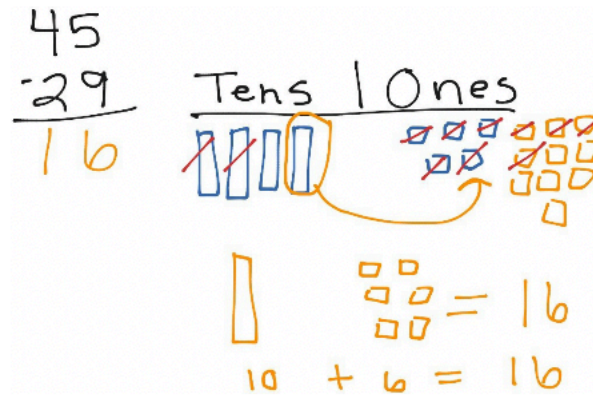 45
-29
16
Tens | Ones
= 16
10 + 6 = 16